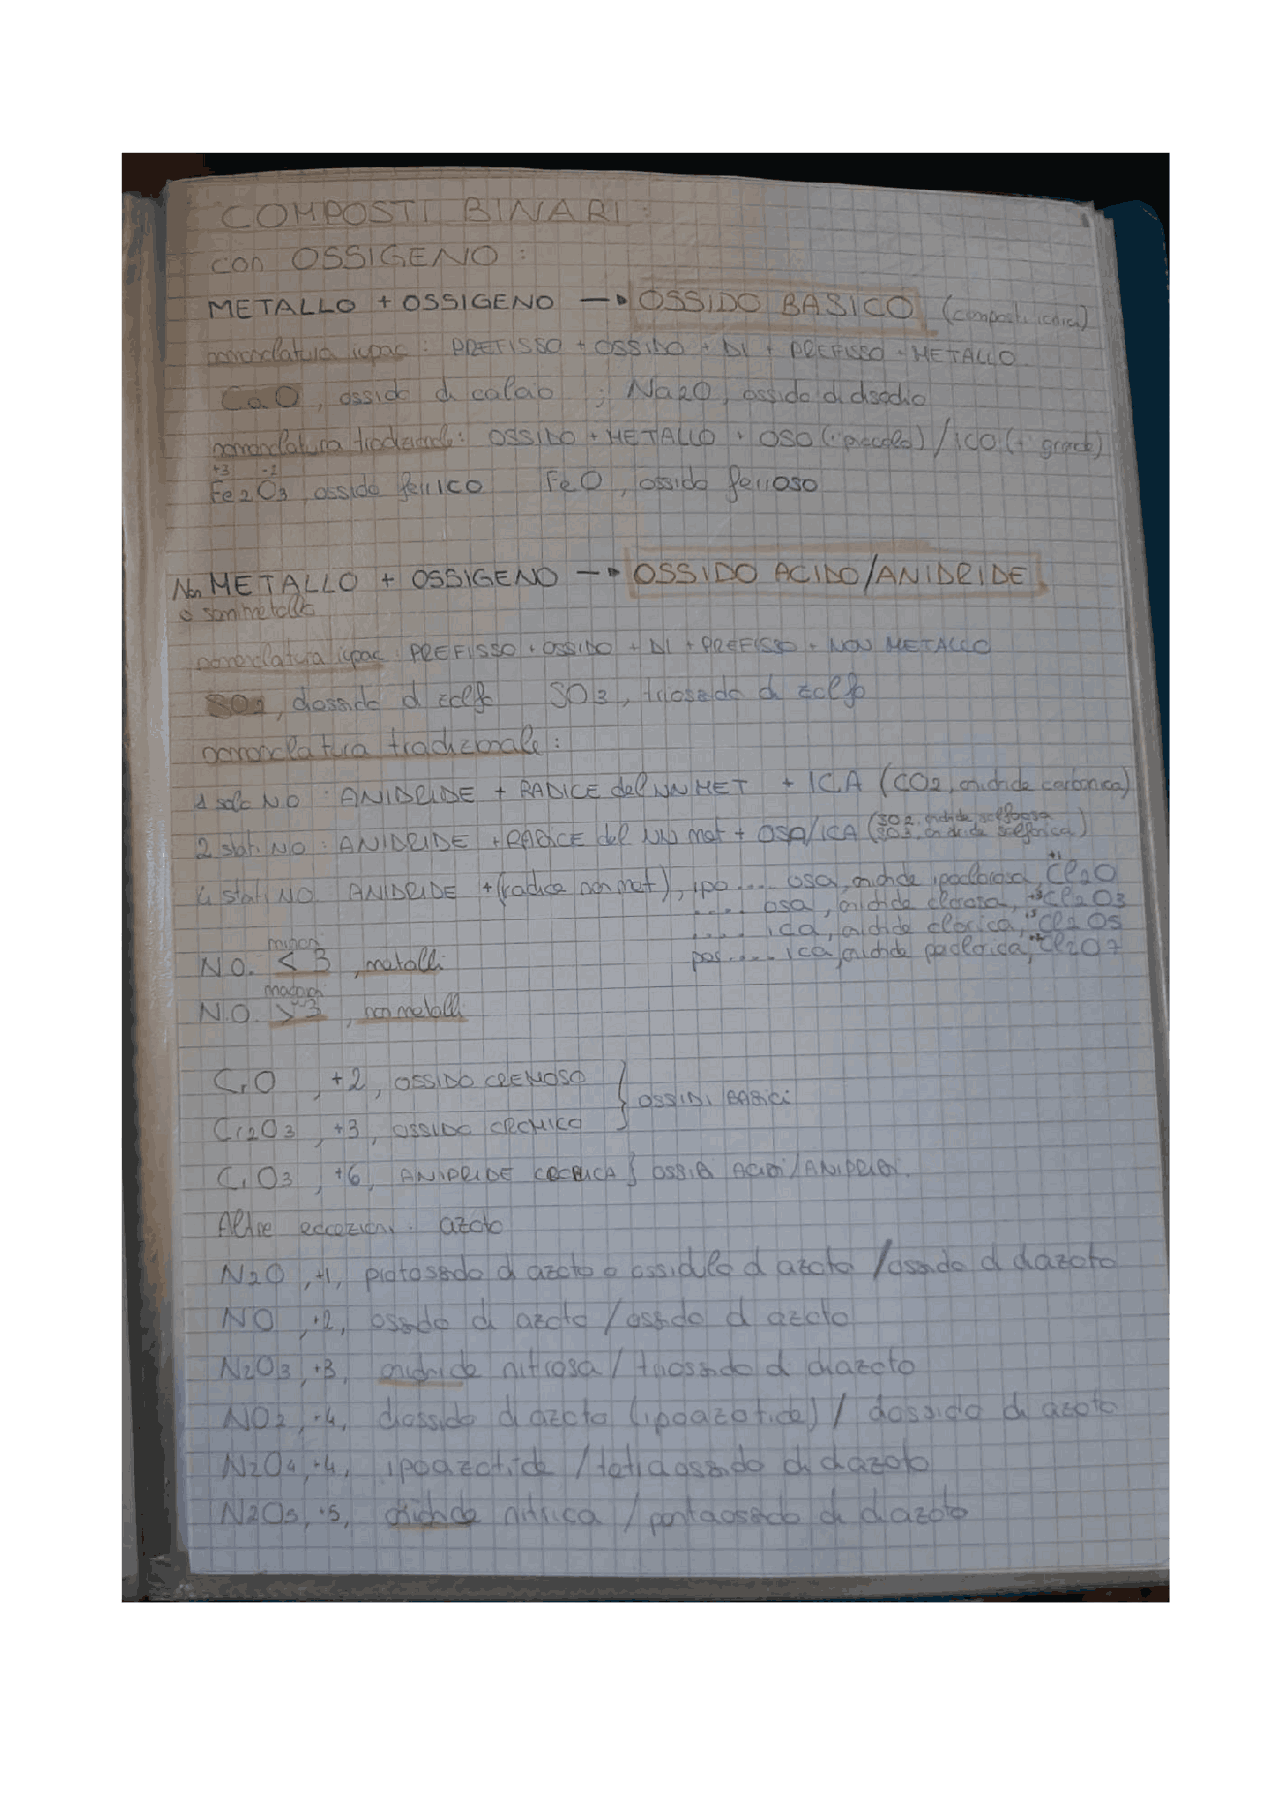 COMPOSTI BINARI:
con OSSIGENO:
METALLO + OSSIGENO → OSSIDO BASICO (composti ionici)
nomenclatura iupac: PREFISSO + OSSIDO + DI + PREFISSO + METALLO
CaO, ossido di calcio ; Na2O, ossido di disodio
nomenclatura tradizionale: OSSIDO + METALLO + OSO (+ piccolo) / ICO (+ grande)
+3 -2
Fe2O3, ossido ferrICO FeO, ossido ferrOSO
Non METALLO + OSSIGENO → OSSIDO ACIDO/ANIDRIDE
o semimetallo
nomenclatura iupac: PREFISSO + OSSIDO + DI + PREFISSO + NON METALLO
SO2, diossido di zolfo SO3, triossido di zolfo
nomenclatura tradizionale:
1 solo N.O: ANIDRIDE + RADICE del NN MET + ICA (CO2, anidride carbonica)
2 stati NO: ANIDRIDE + RADICE del NN met + OSA/ICA (SO2, anidride solforosa
SO3, anidride solforica)
4 stati NO: ANIDRIDE + (radice non met), ipo .... osa, anidride ipoclorosa, +1 Cl2O
.... osa, anidride clorosa, +3 Cl2O3
.... ica, anidride clorica, +5 Cl2O5
per .... ica, anidride perclorica, +7 Cl2O7
minori
N.O. < 3, metalli
maggiori
N.O. > 3, non metalli
CrO, +2, OSSIDO CROMOSO
Cr2O3, +3, OSSIDO CROMICO } OSSIDI BASICI
CrO3, +6, ANIDRIDE CROMICA } OSSIDI ACIDI/ANIDRIDI.
Altre eccezioni: azoto
N2O, +1, protossido di azoto o ossidulo di azoto / ossido di diazoto
NO, +2, ossido di azoto / ossido di azoto
N2O3, +3, anidride nitrosa / triossido di diazoto
NO2, +4, diossido di azoto (ipoazotide) / diossido di azoto
N2O4, +4, ipoazotide / tetraossido di diazoto
N2O5, +5, anidride nitrica / pentaossido di diazoto